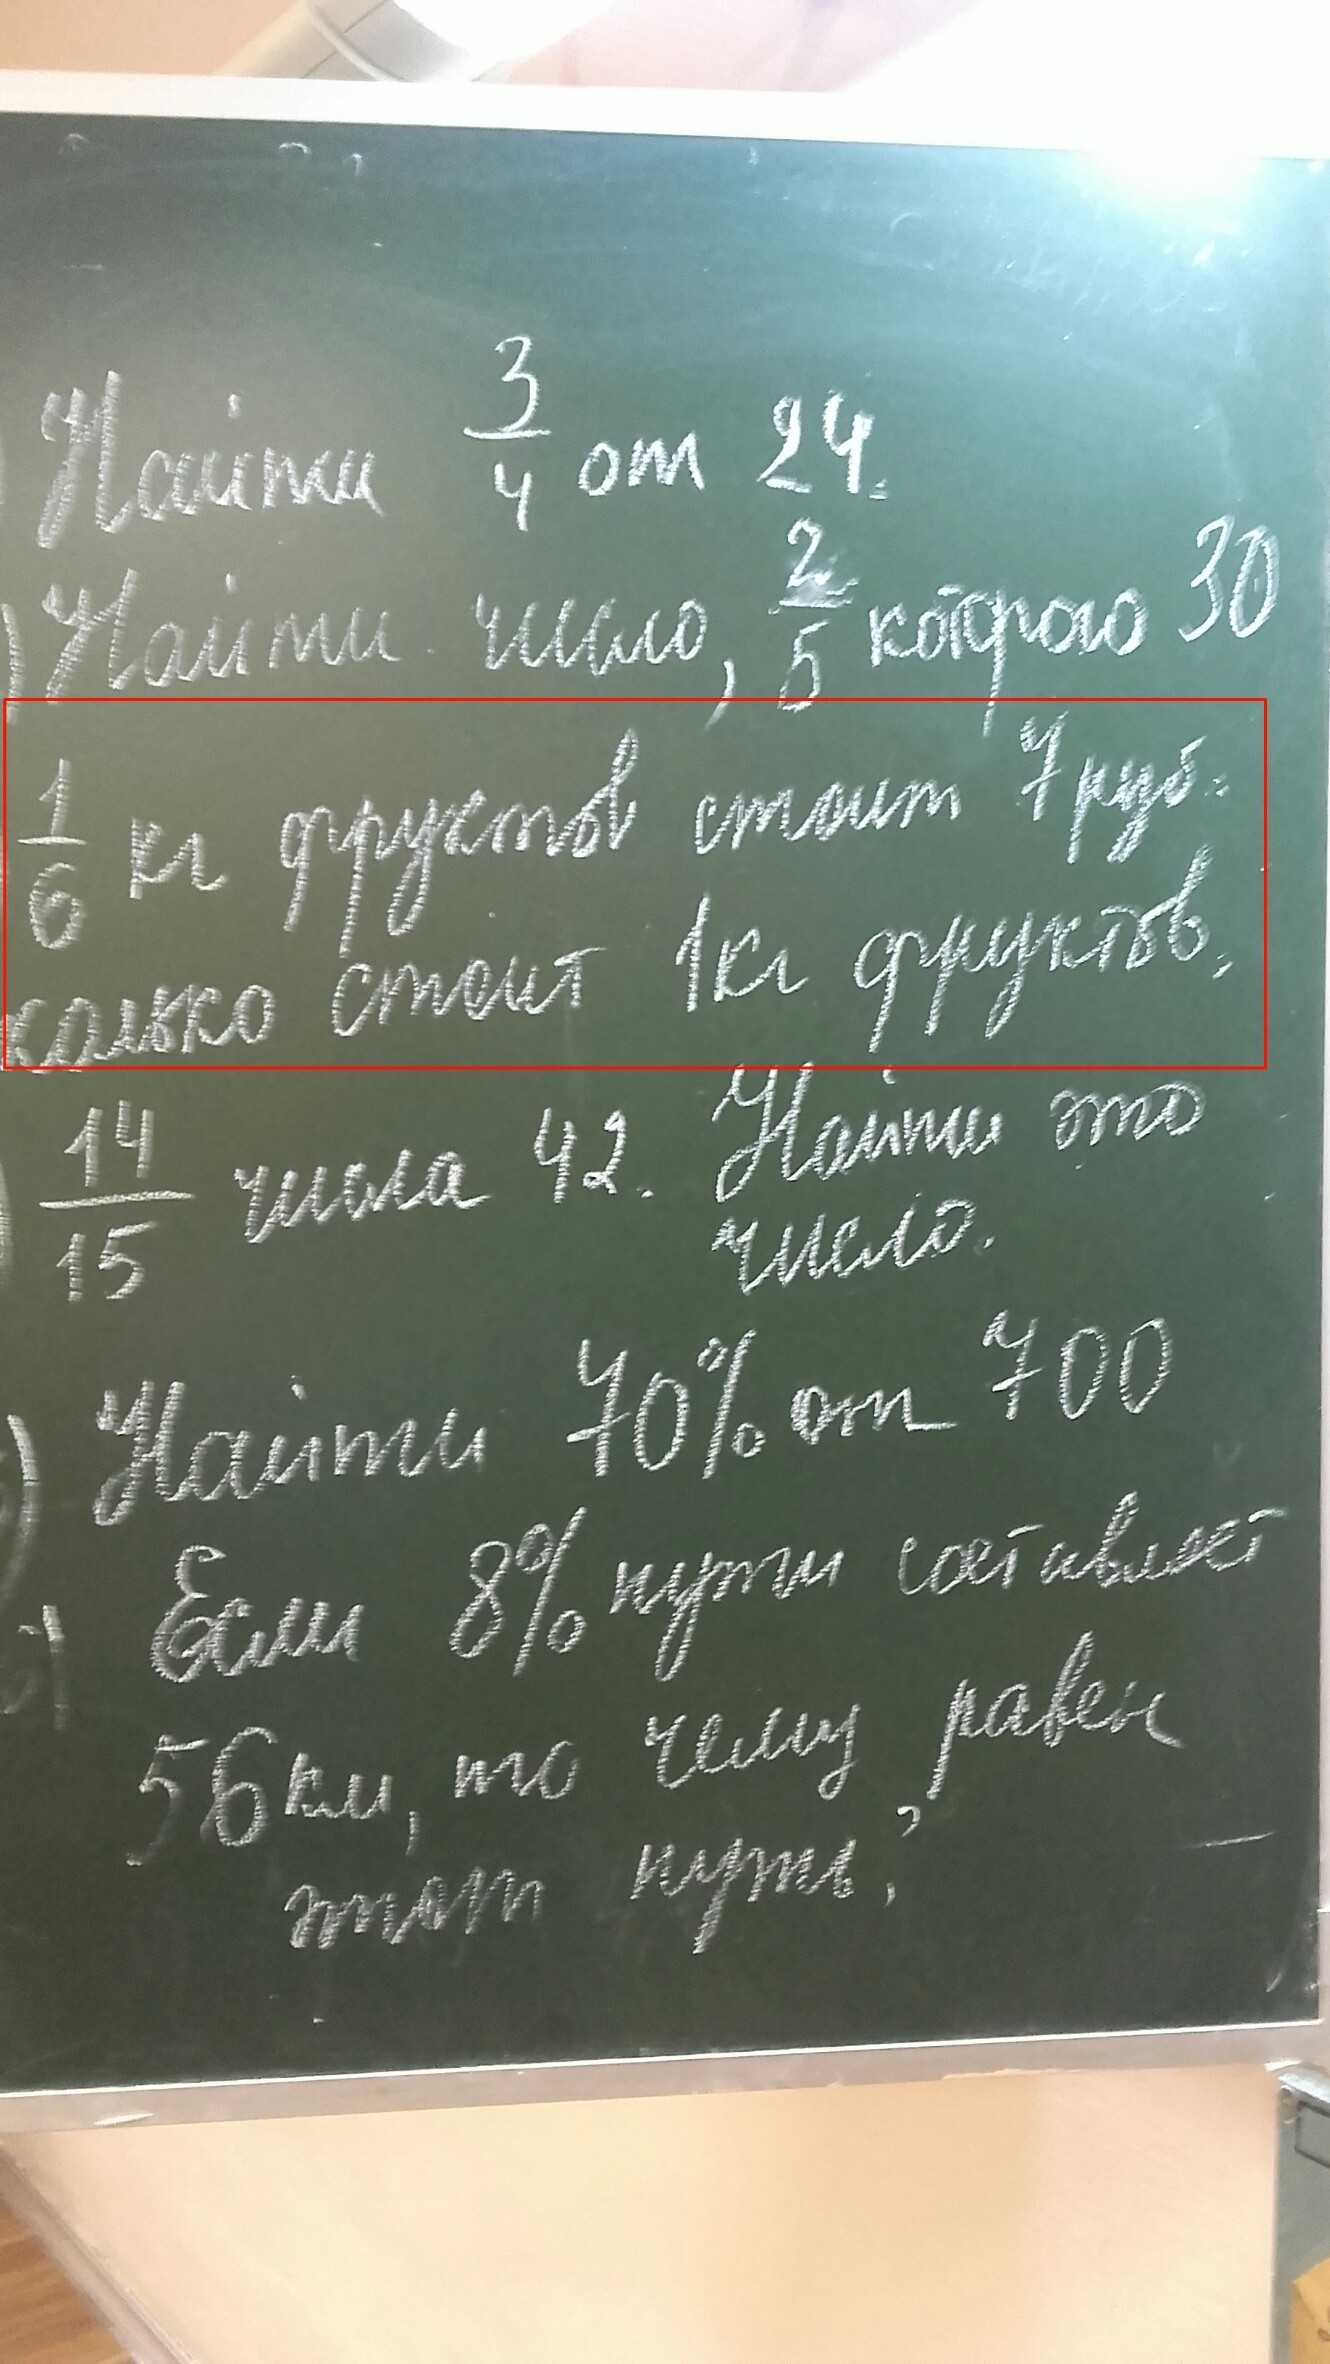 Найти 3/4 от 24.
) Найти число, 2/5 которого 30
1/6 кг фруктов стоит 7 руб.
сколько стоит 1кг фруктов.
14/15 числа 42. Найти это
число.
) Найти 70% от 700
Если 8% пути составляет
56км, то чему равен
этот путь?